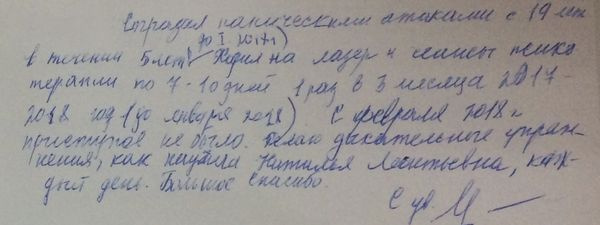 Страдал паническими атаками с 19 лет
(до I 2017г)
в течении 5 лет. Ходил на лазер и сеансы психо
терапии по 7-10 дней 1 раз в 3 месяца 2017-
2018 год (до января 2018) С февраля 2018г
приступов не было. Делаю дыхательные упраж-
нения, как научила Наталья Леонтьевна, каж-
дый день. Большое спасибо.
С ув.